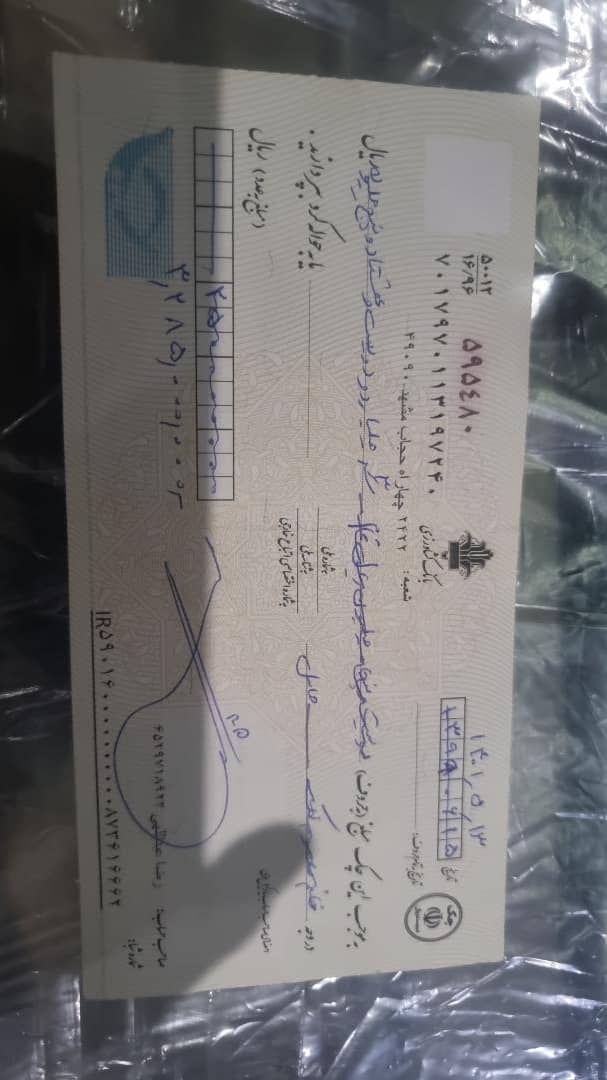 ۵۰۰۱۲
۱۶/۹۶
۵۹۵۴۸۰
۷۰۱۷۹۷۰۱۱۳۱۹۷۲۴۰
بانک کشاورزی
شعبه: ۲۴۲۲ چهارراه حجاب مشهد ۴۹۰۹۰
۱۴۰۱/۵/۱۳
تاریخ ۱۳۹۹۰۶۱۵
چک
تاریخ به تمام حروف:
به موجب این چک مبلغ (به حروف) ۳ میلیارد و دویست و هشتاد و پنج میلیون ریال
در وجه خانم حامل
به شماره ملی
به شناسه ملی
به شماره اختصاصی اتباع خارجی
یا به حواله کرد بپردازید.
امضای صاحب حساب یا وکیل وی
(مبلغ به عدد) ریال
۲۵۰۰۰۰۰۰۰
۳,۲۸۵,۰۰۰,۰۰۰
صاحب حساب: رضا عبداللهی ۶۵۲۹۷۱۸۹۲۳
شماره شبا:
IR۵۹۰۱۶۰۰۰۰۰۰۰۰۰۰۰۸۷۳۶۱۶۶۶۲